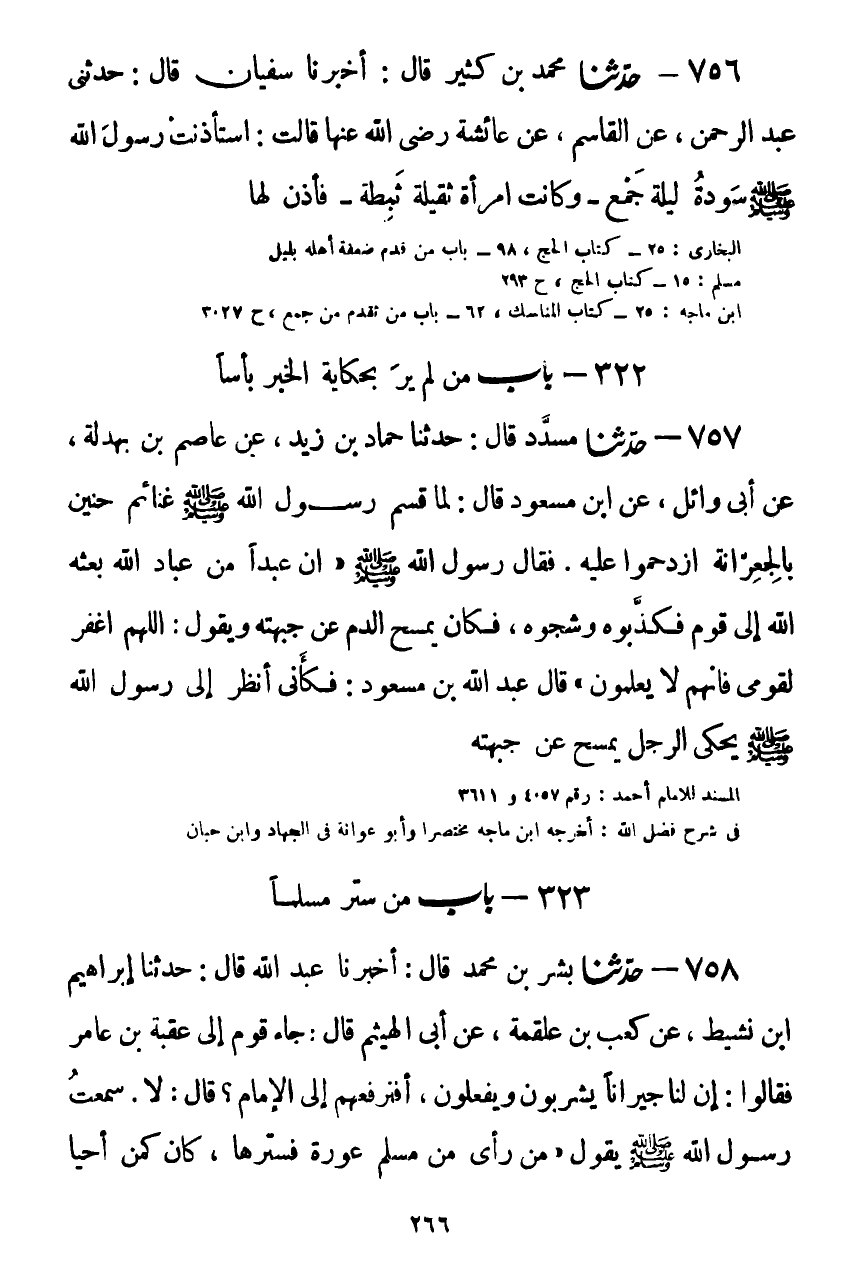 ٧٥٦ – حدّثنا محمد بن كثير قال : أخبرنا سفيان قال : حدثنى
عبد الرحمن ، عن القاسم ، عن عائشة رضى الله عنها قالت : استأذنتْ رسولَ الله
ﷺ سَودةُ ليلة جَمْع – وكانت امرأة ثقيلة ثَبِطة – فأذن لها
البخارى : ٢٥ – كتاب الحج ، ٩٨ – باب من قدم ضعفة أهله بليل
مسلم : ١٥ – كتاب الحج ، ح ٢٩٣
ابن ماجه : ٢٥ – كتاب المناسك ، ٦٢ – باب من تقدم من جمع ، ح ٣٠٢٧
٣٢٢ – باب من لم يرَ بحكاية الخبر بأساً
٧٥٧ – حدّثنا مسدَّد قال : حدثنا حماد بن زيد ، عن عاصم بن بهدلة ،
عن أبى وائل ، عن ابن مسعود قال : لما قسم رسول الله ﷺ غنائم حنين
بالجِعِرّانة ازدحموا عليه . فقال رسول الله ﷺ « ان عبداً من عباد الله بعثه
الله إلى قوم فكذَّبوه وشجوه ، فكان يمسح الدم عن جبهته ويقول : اللهم اغفر
لقومى فانهم لا يعلمون » قال عبد الله بن مسعود : فكأَنى أنظر إلى رسول الله
ﷺ يحكى الرجل يمسح عن جبهته
المسند للامام أحمد : رقم ٤٠٥٧ و ٣٦١١
فى شرح فضل الله : أخرجه ابن ماجه مختصرا وأبو عوانة فى الجهاد وابن حبان
٣٢٣ – باب من ستّر مسلماً
٧٥٨ – حدّثنا بشر بن محمد قال : أخبرنا عبد الله قال : حدثنا إبراهيم
ابن نشيط ، عن كعب بن علقمة ، عن أبى الهيثم قال : جاء قوم إلى عقبة بن عامر
فقالوا : إن لنا جيراناً يشربون ويفعلون ، أفنرفعهم إلى الإمام ؟ قال : لا . سمعتُ
رسول الله ﷺ يقول « من رأى من مسلم عورة فستّرها ، كان كمن أحيا
٢٦٦